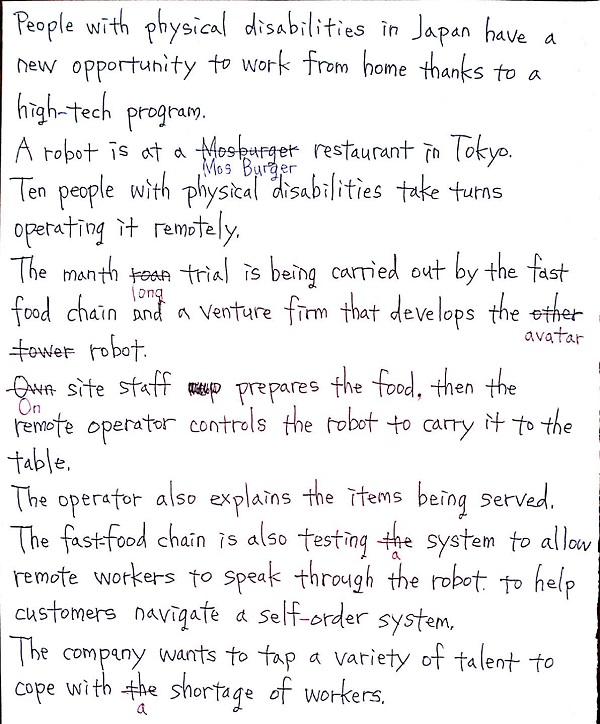 People with physical disabilities in Japan have a
new opportunity to work from home thanks to a
high-tech program.
A robot is at a Mosburger restaurant in Tokyo.
Mos Burger
Ten people with physical disabilities take turns
operating it remotely.
The manth roan trial is being carried out by the fast
long
food chain and a venture firm that develops the other
avatar
tower robot.
Own site staff prepares the food, then the
On
remote operator controls the robot to carry it to the
table.
The operator also explains the items being served.
The fast-food chain is also testing the system to allow
a
remote workers to speak through the robot. to help
customers navigate a self-order system.
The company wants to tap a variety of talent to
cope with the shortage of workers.
a